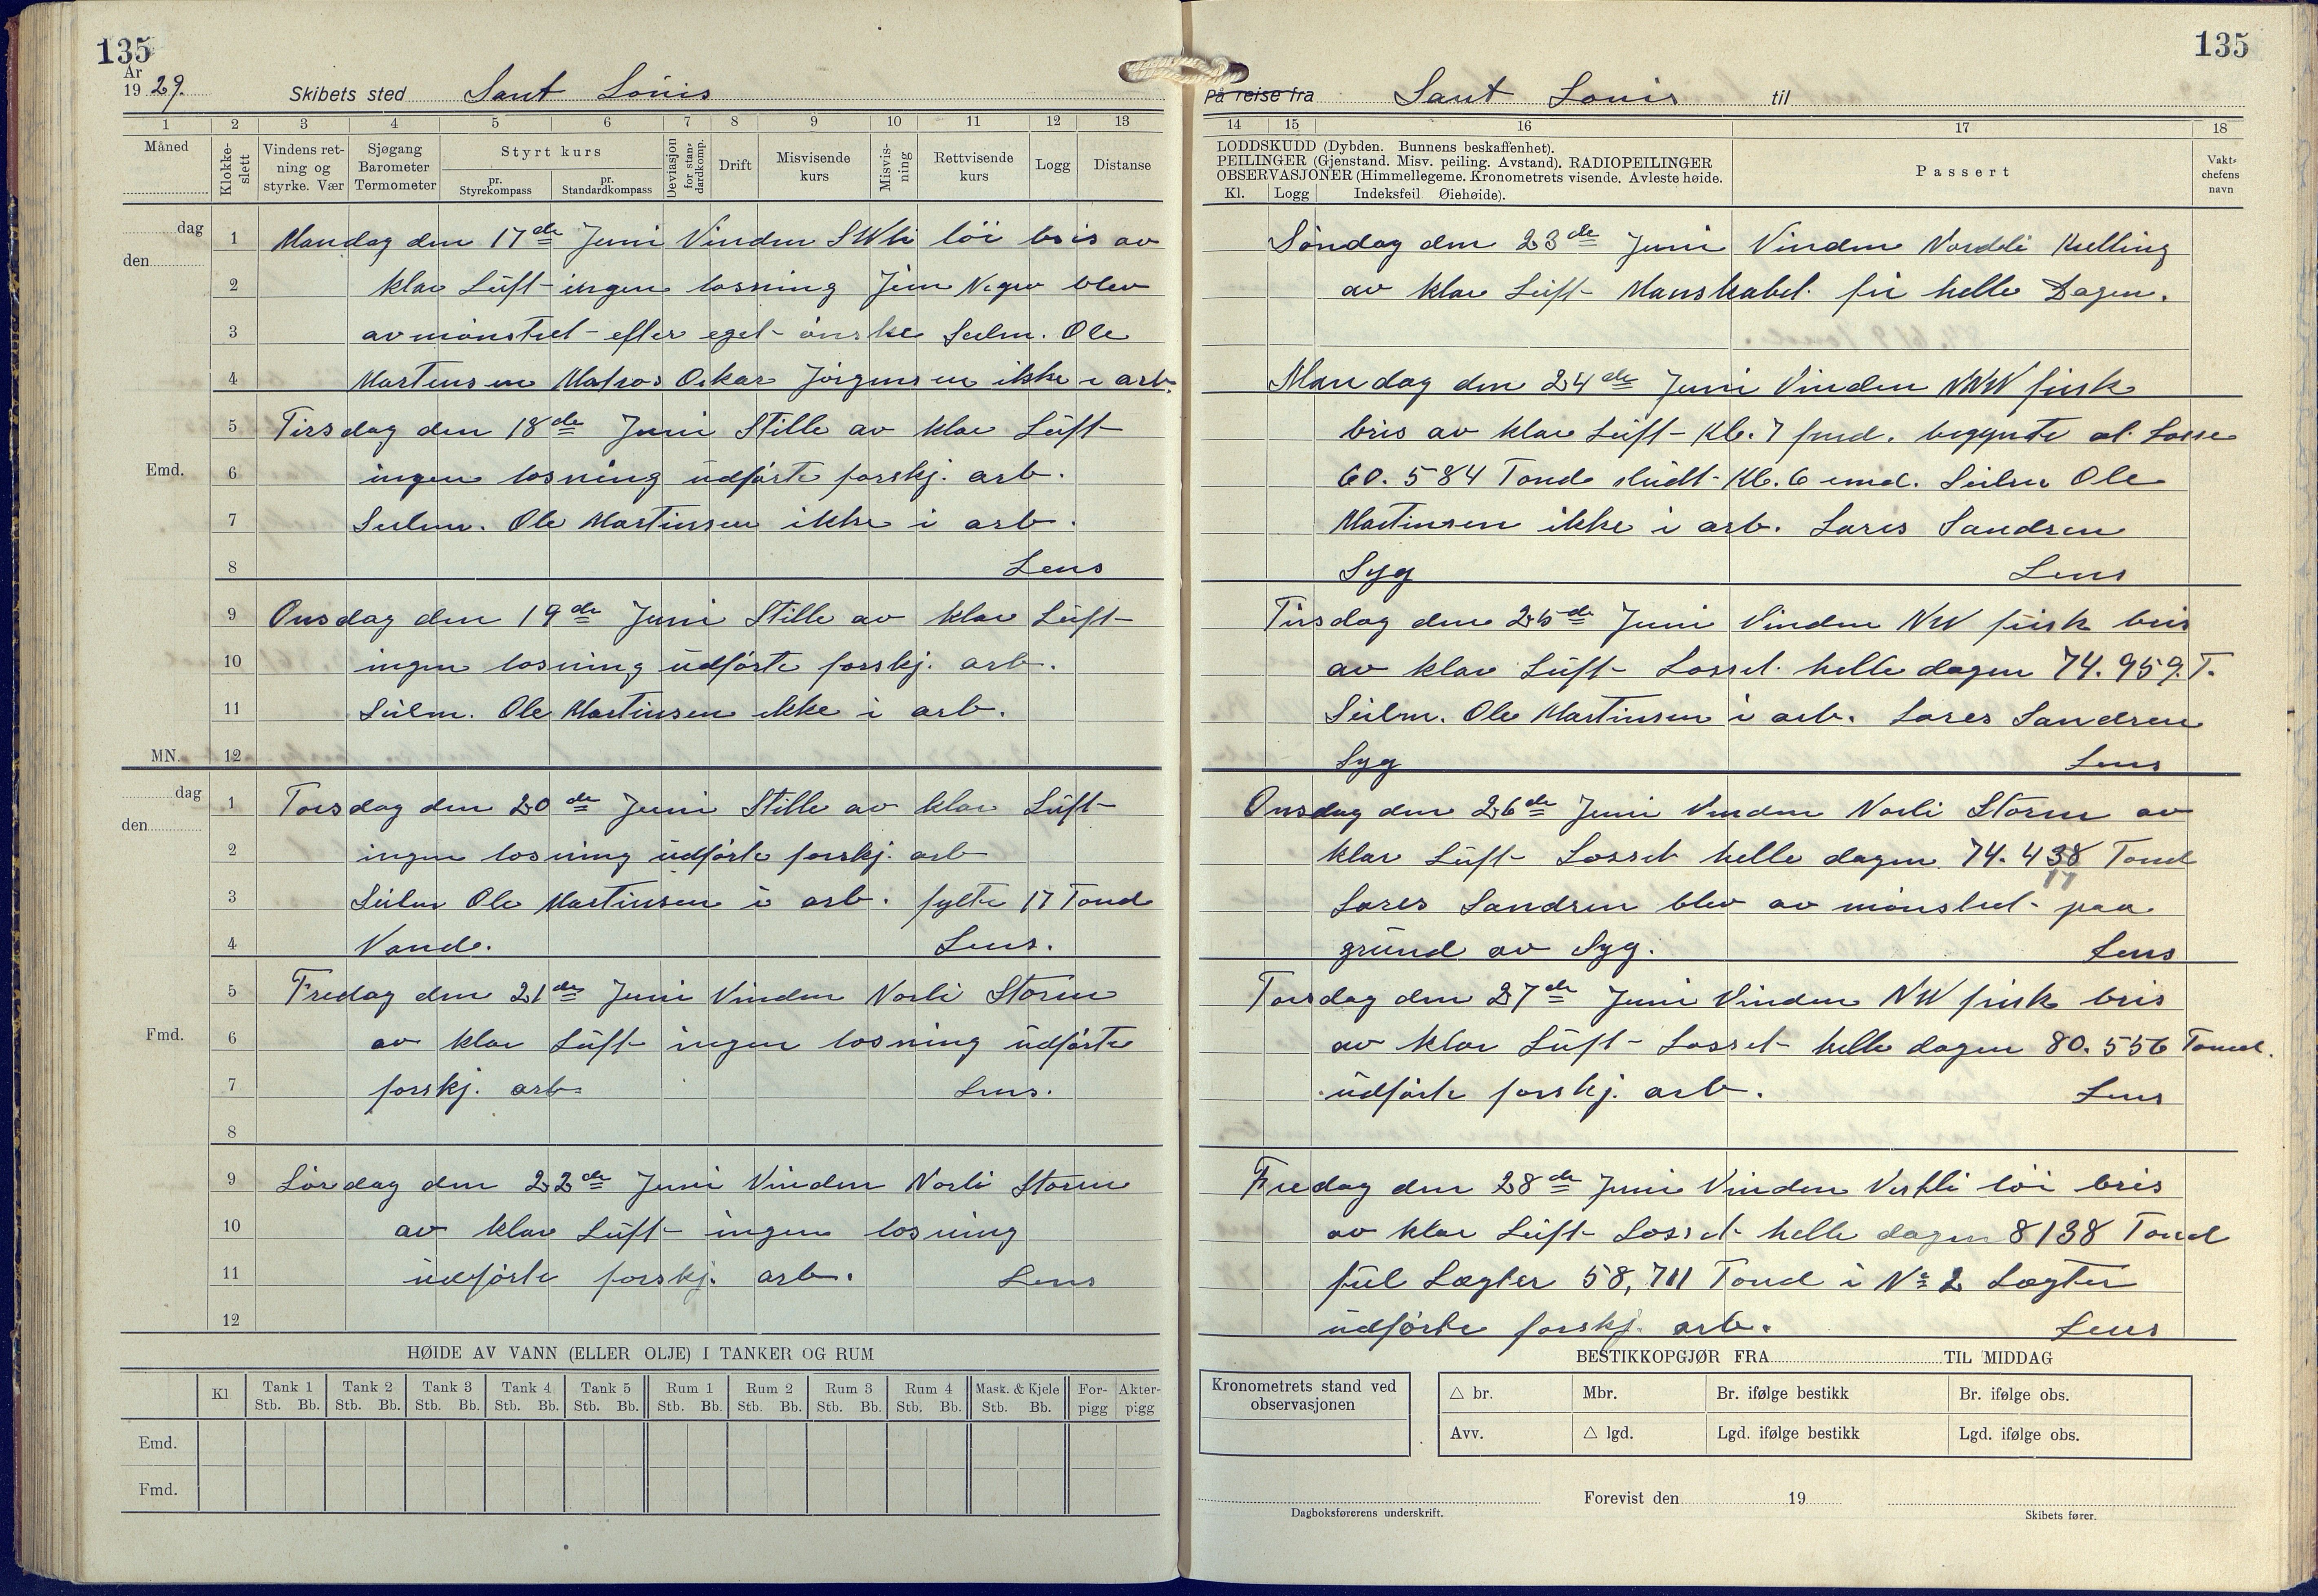 135
År
1929. Skibets sted Sant Louis
1 2 3 4 5 6 7 8 9 10 11 12 13
Måned
Klokke-slett
Vindens ret-ning og styrke. Vær
Sjøgang Barometer Termometer
Styrt kurs
pr. Styrekompass
pr. Standardkompass
Deviasjon for stan-dardkomp.
Drift
Misvisende kurs
Misvis-ning
Rettvisende kurs
Logg
Distanse
dag
den
1 Mandag den 17de Juni Vinden SWli löi bris av
2 klar Lüft ingen losning Jim Negro blev
3 avmönstret efter eget önske Seilm. Ole
4 Martensen Matros Oskar Jörgensen ikke i arb.
5 Tirsdag den 18de Juni Stille av klar Lüft
Emd. 6 ingen losning üdförte forskj. arb.
7 Seilm. Ole Martinsen ikke i arb.
8 Lens
9 Onsdag den 19de Juni Stille av klar Lüft
10 ingen losning üdförte forskj. arb.
11 Seilm. Ole Martinsen ikke i arb.
MN. 12
dag
den
1 Torsdag den 20de Juni Stille av klar Lüft
2 ingen losning üdförte forskj. arb
3 Seilm Ole Martinsen i arb. fylte 17 Tond
4 Vand. Lens.
5 Fredag den 21de Juni Vinden Norli Storm
Fmd. 6 av klar Lüft ingen losning üdförte
7 forskj. arb. Lens.
8
9 Lördag den 22de Juni Vinden Norli Storm
10 av klar Lüft ingen losning
11 üdförte forskj. arb. Lens
12
HØIDE AV VANN (ELLER OLJE) I TANKER OG RUM
Kl Tank 1 Tank 2 Tank 3 Tank 4 Tank 5 Rum 1 Rum 2 Rum 3 Rum 4 Mask. & Kjele For-pigg Akter-pigg
Stb. Bb. Stb. Bb. Stb. Bb. Stb. Bb. Stb. Bb. Stb. Bb. Stb. Bb. Stb. Bb. Stb. Bb. Stb. Bb.
Emd.
Fmd.
135
På reise fra Sant Louis til
14 15 16 17 18
LODDSKUDD (Dybden. Bunnens beskaffenhet).
PEILINGER (Gjenstand. Misv. peiling. Avstand). RADIOPEILINGER
OBSERVASJONER (Himmellegeme. Kronometrets visende. Avleste høide.
Kl. Logg Indeksfeil Øiehøide).
Passert
Vakt-chefens navn
Söndag den 23de Juni Vinden Nordli Kulling
av klar Lüft Manskabet fri helle Dagen.
Mandag den 24de Juni Vinden NNW frisk
bris av klar Lüft Kl. 7 fmd. begynte at Losse
60.584 Tond slüdt Kl. 6 emd. Seilm Ole
Martinsen ikke i arb. Lares Sandren
Syg Lens
Tirsdag den 25de Juni Vinden NW frisk bris
av klar Lüft Losset helle dagen 74.959. T.
Seilm. Ole Martinsen i arb. Lares Sandren
Syg Lens
Onsdag den 26de Juni Vinden Norli Storm av
klar Lüft Losset helle dagen 74.438 Tond
Lares Sandren blev av mönstret paa
gründ av Syg. Lens
Torsdag den 27de Juni Vinden NW frisk bris
av klar Lüft Losset helle dagen 80.556 Tond.
üdförte forskj. arb. Lens
Fredag den 28de Juni Vinden Vestli löi bris
av klar Lüft Losset helle dagen 8138 Tond
fül Lægter 58,711 Tond i No 2 Lægter
üdförte forskj. arb. Lens
BESTIKKOPGJØR FRA TIL MIDDAG
Kronometrets stand ved observasjonen
△ br. Mbr. Br. ifølge bestikk Br. ifølge obs.
Avv. △ lgd. Lgd. ifølge bestikk Lgd. ifølge obs.
Forevist den 19
Dagboksførerens underskrift. Skibets fører.